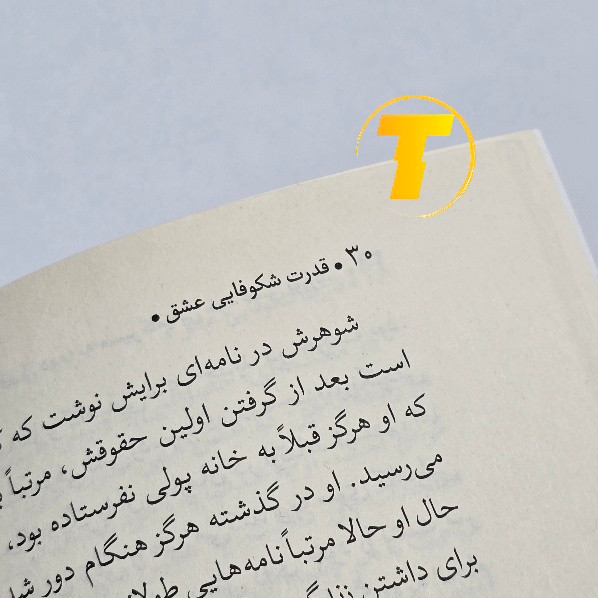 T
۳۰ • قدرت شکوفایی عشق •
شوهرش در نامه‌ای برایش نوشت که
است بعد از گرفتن اولین حقوقش، مرتباً
که او هرگز قبلاً به خانه پولی نفرستاده بود،
می‌رسید. او در گذشته هرگز هنگام دور
حال او حالا مرتباً نامه‌هایی
برای داشتن